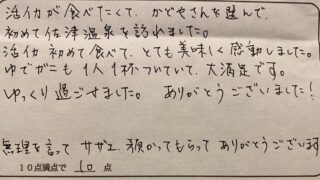 活イカが食べたくて、かどやさんを選んで、
初めて佐津温泉を訪れました。
活イカ初めて食べて、とても美味しく感動しました。
ゆでガニも1人1杯ついていて、大満足です。
ゆっくり過ごせました。 ありがとうございました!
無理を言ってサザエ、預かってもらってありがとうございます
10点満点で 10 点